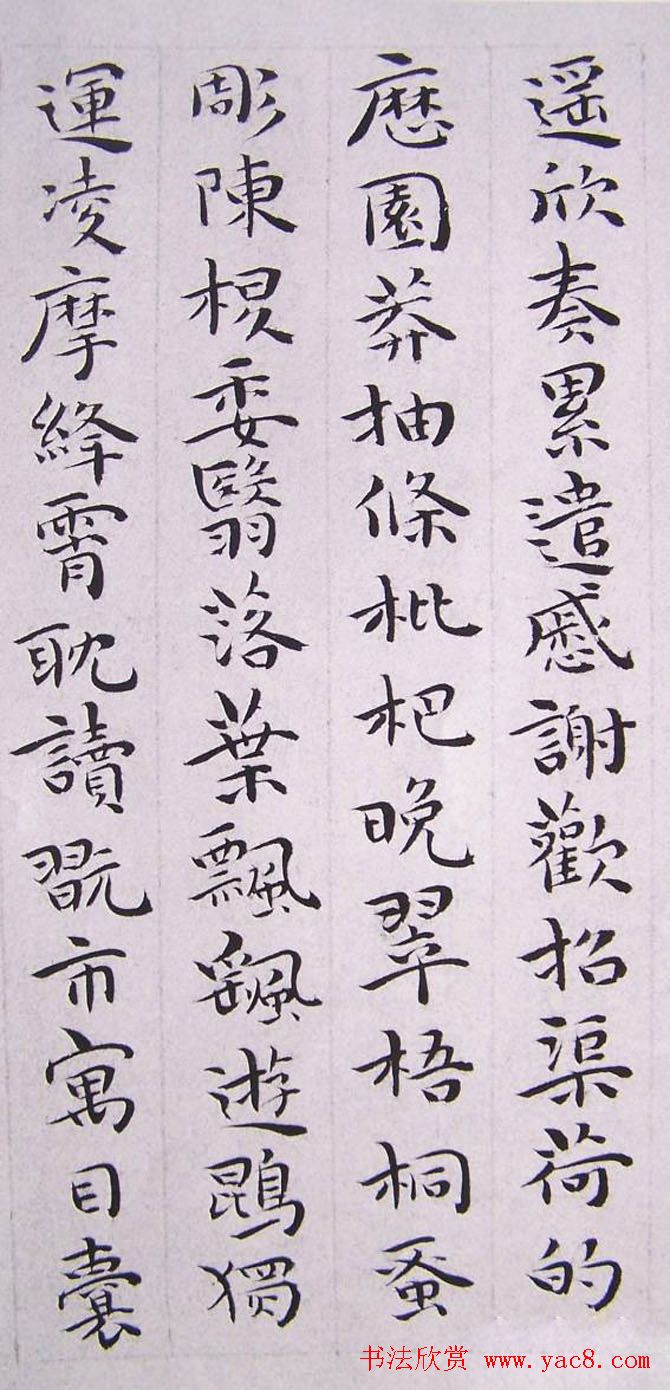 遥欣奏累遣慼謝歡招渠荷的
歷園莽抽條枇杷晚翠梧桐蚤
彫陳根委翳落葉飄颻遊鵾獨
運凌摩絳霄耽讀翫市寓目囊
书法欣赏 www.yac8.com